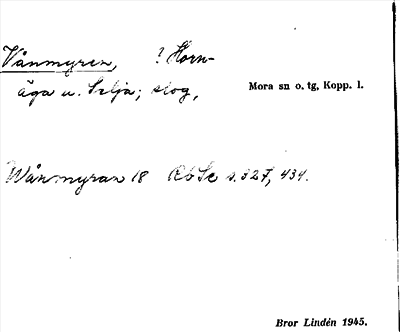 Vånmyren, ? Horn-
äga u. Selja; slog,
Mora sn o. tg, Kopp. l.
Wånmyran 18 RbSe s. 327, 434.
Bror Lindén 1945.